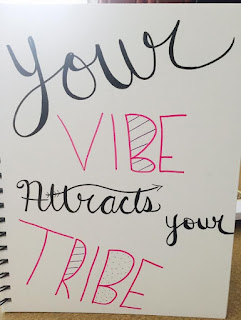 your
VIBE
Attracts
your
TRIBE